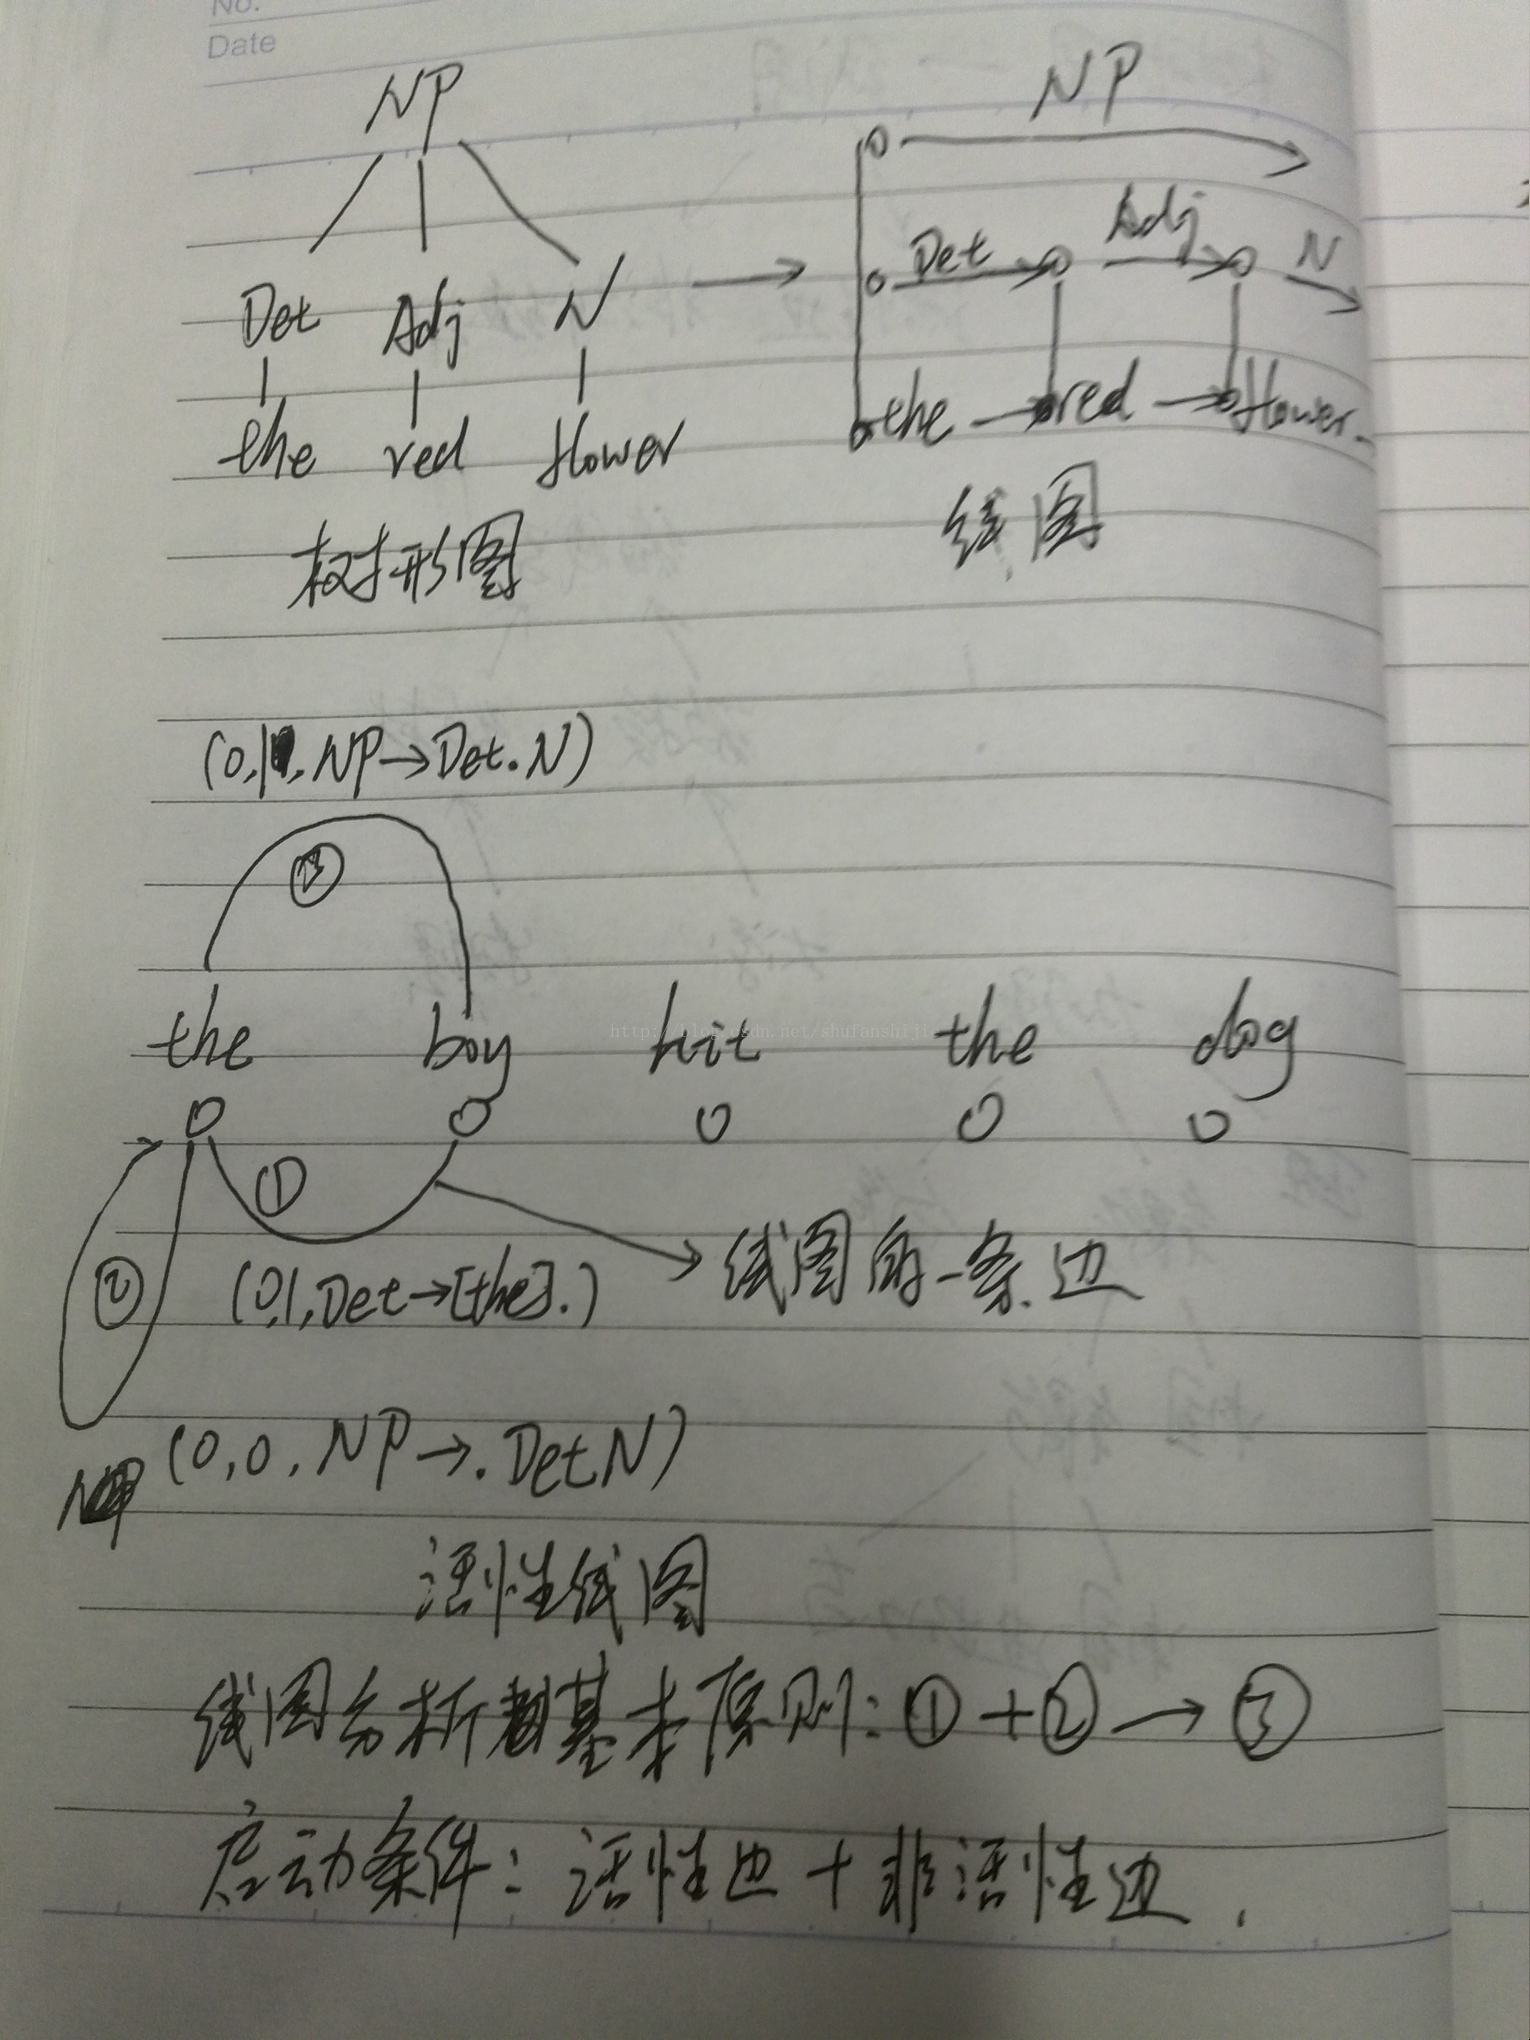 No.
Date
NP
Det Adj N
the red flower
树形图
NP
Det Adj N
the red flower.
线图
(0,1, NP→Det.N)
③
the boy hit the dog
①
②
(0,1,Det→[the].)
线图的一条边
(0,0,NP→.DetN)
活性线图
线图分析基本原则:①+②→③
启动条件:活性边+非活性边.